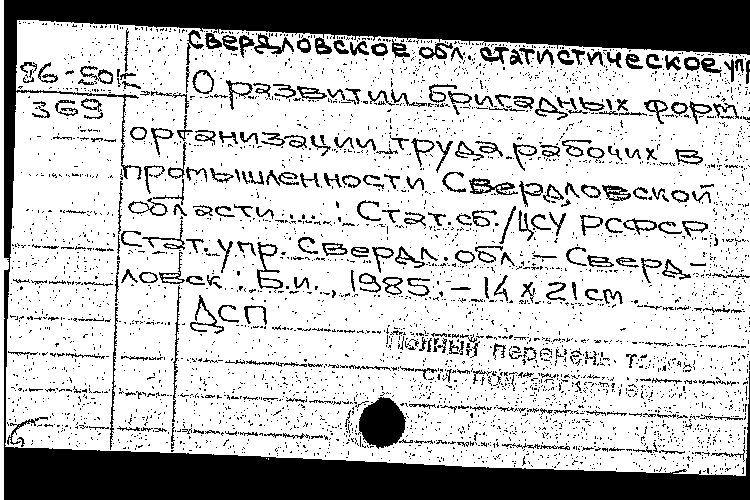 Свердловское обл. статистическое упр
86-50к
369
О развитии бригадных форм
организации труда рабочих в
промышленности Свердловской
области...: Стат.сб./ЦСУ РСФСР,
Стат. упр. Свердл. обл. – Сверд-
ловск : Б.и., 1985. – 14 x 21 cm.
ДСП
Полный перечень
см. под